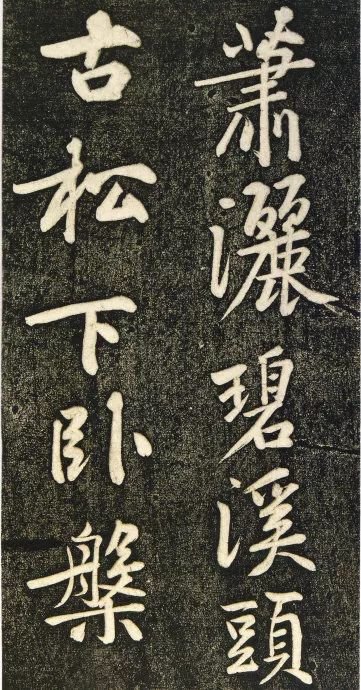 蕭灑碧溪頭
古松下卧槃